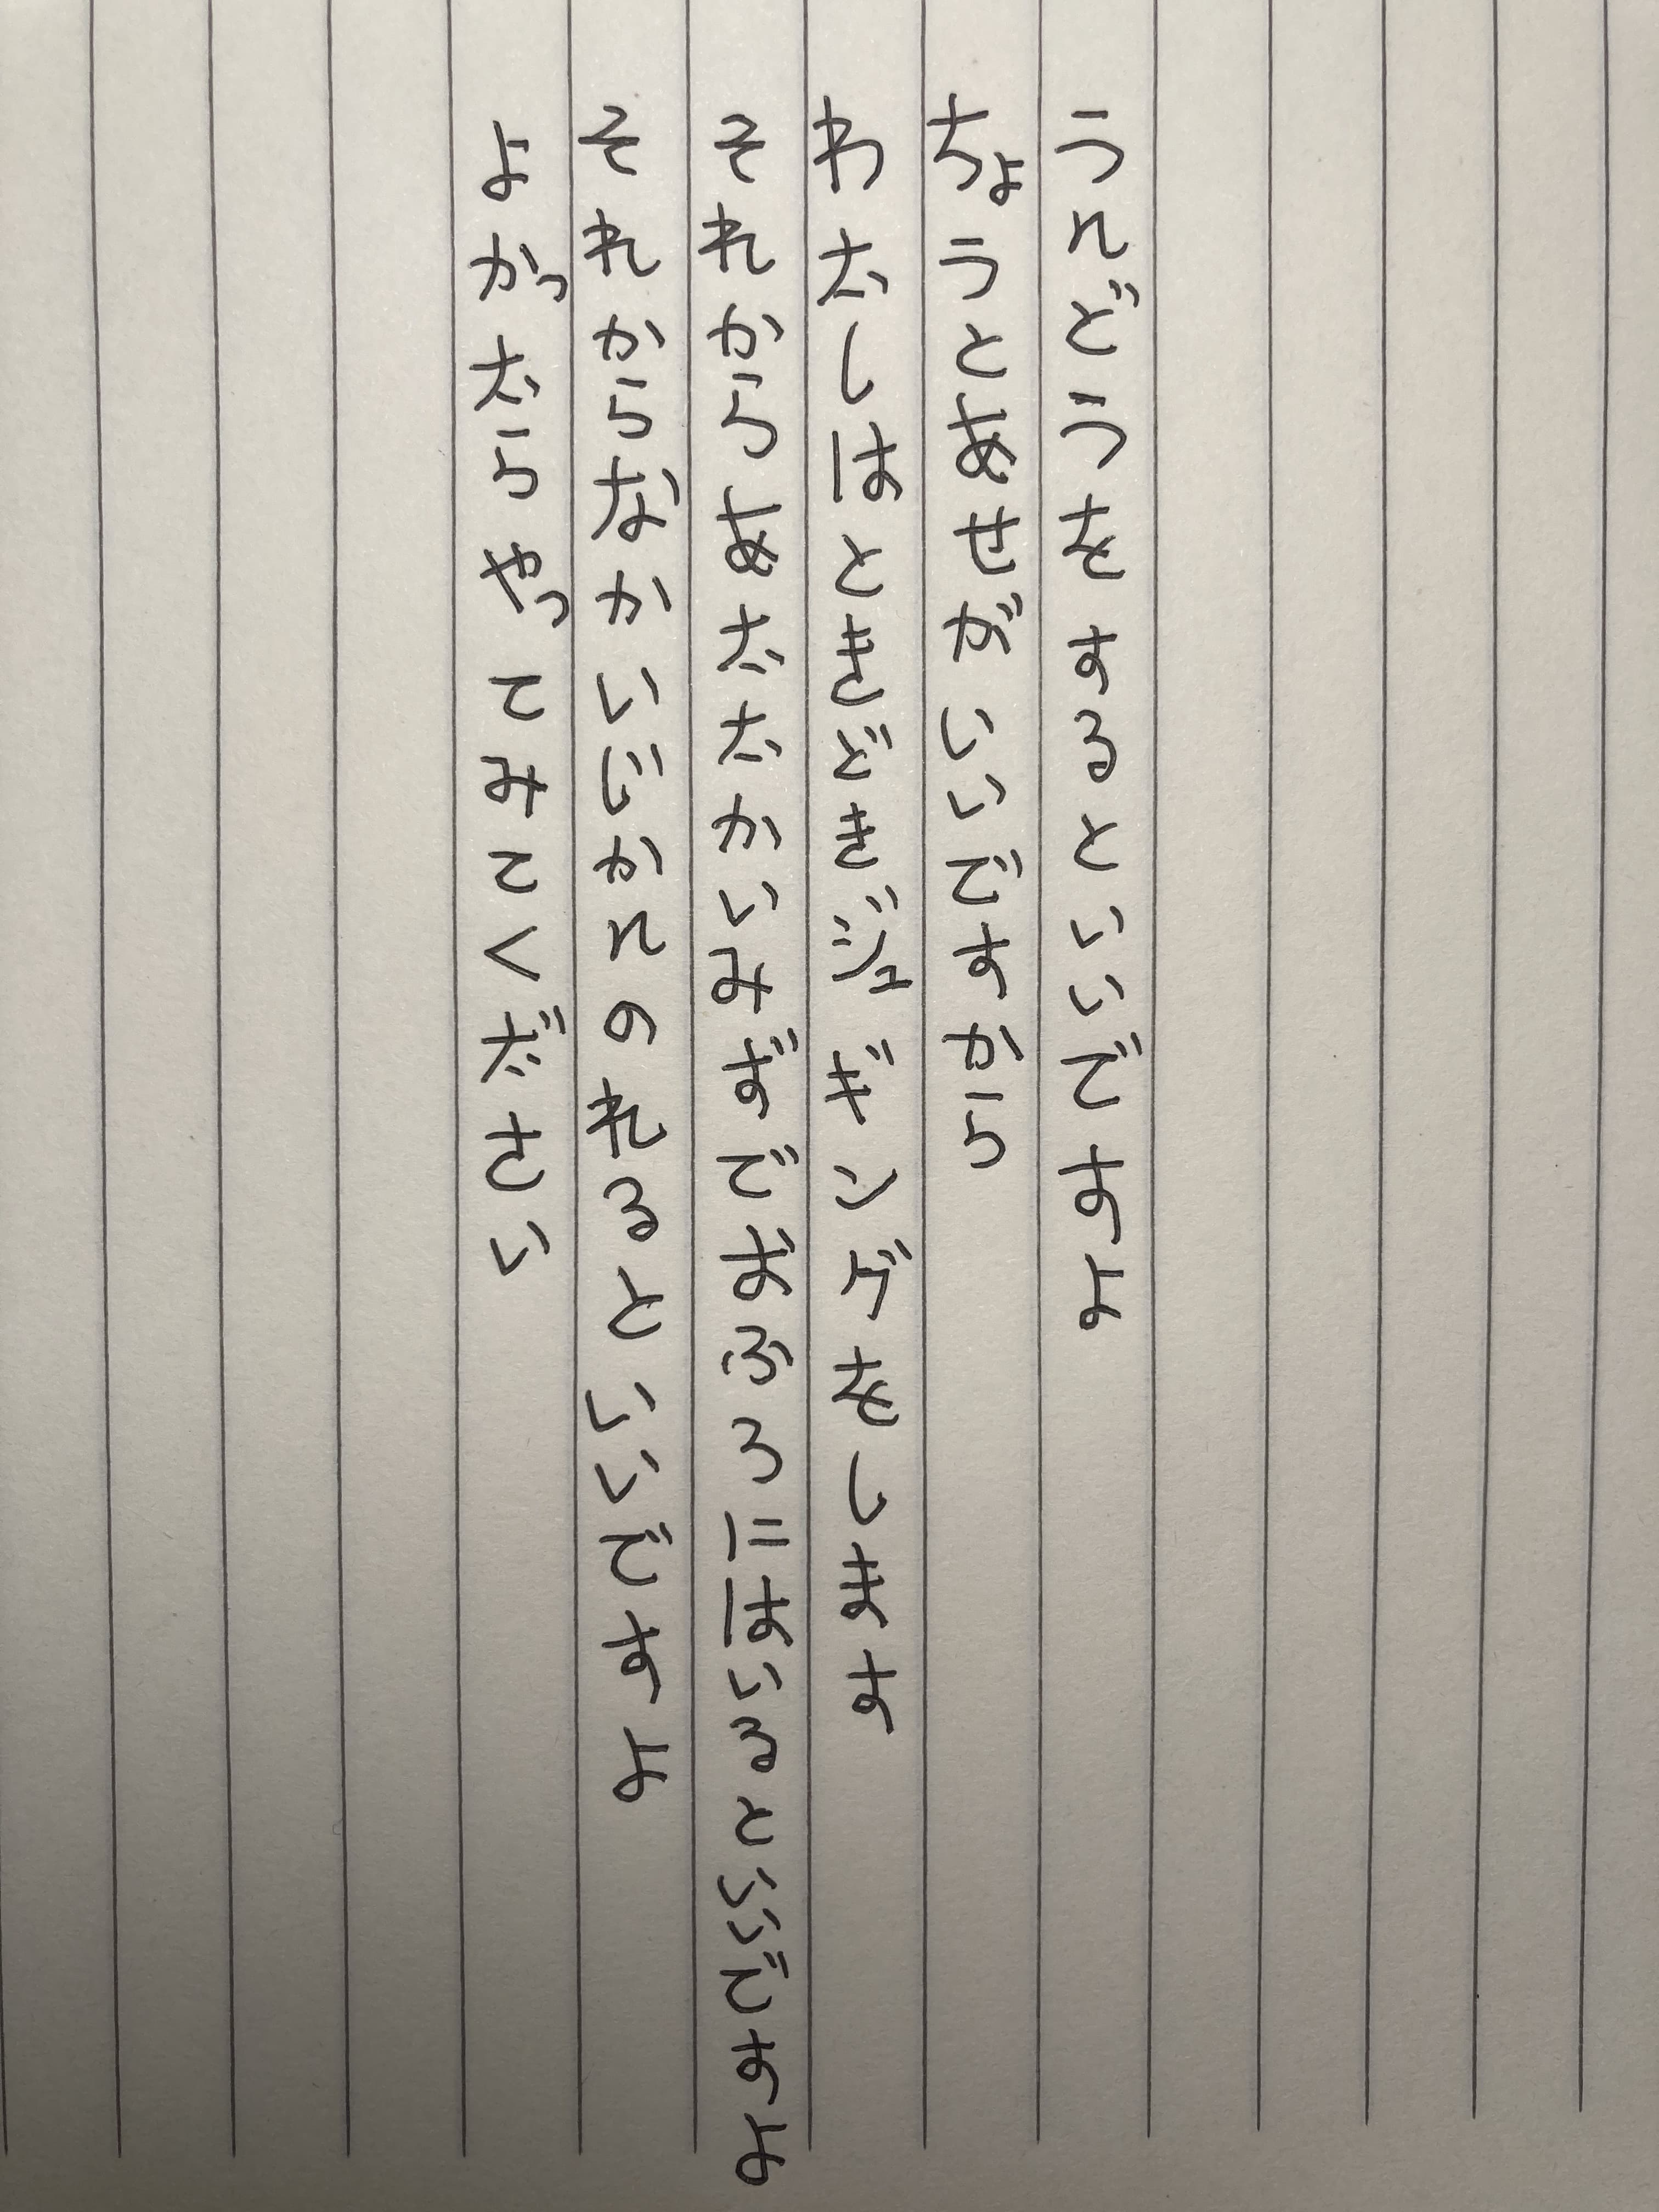 うんどうをするといいですよ
ちょうとあせがいいですから
わたしはときどきジョギングをします
それからあたたかいみずでおふろにはいるといいですよ
それからなかいじかんのねるといいですよ
よかったらやってみてください